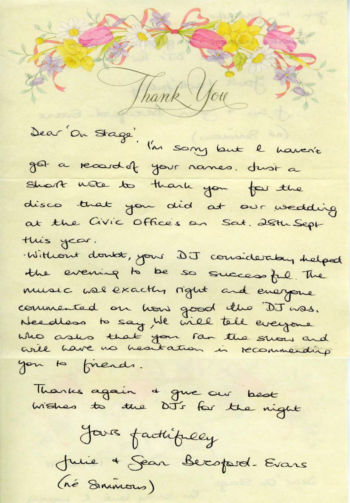 Thank You
Dear 'On Stage',
I'm sorry but I haven't
got a record of your names. Just a
short note to thank you for the
disco that you did at our wedding
at the Civic Offices on Sat. 28th Sept
this year.
Without doubt, your DJ considerably helped
the evening to be so successful. The
music was exactly right and everyone
commented on how good the DJ was.
Needless to say, we will tell everyone
who asks that you ran the show and
will have no hesitation in recommending
you to friends.
Thanks again & give our best
wishes to the DJ's for the night
Yours faithfully
Julie & Sean Beresford-Evans
(né Simmons)